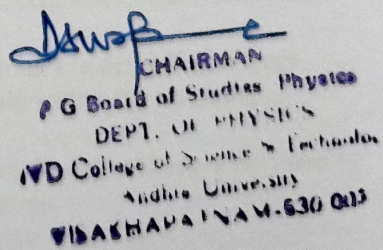 CHAIRMAN
P G Board of Studies Physics
DEPT. OF PHYSICS
College of Science & Technolog
Andhra University
VISAKHAPATNAM-530 003